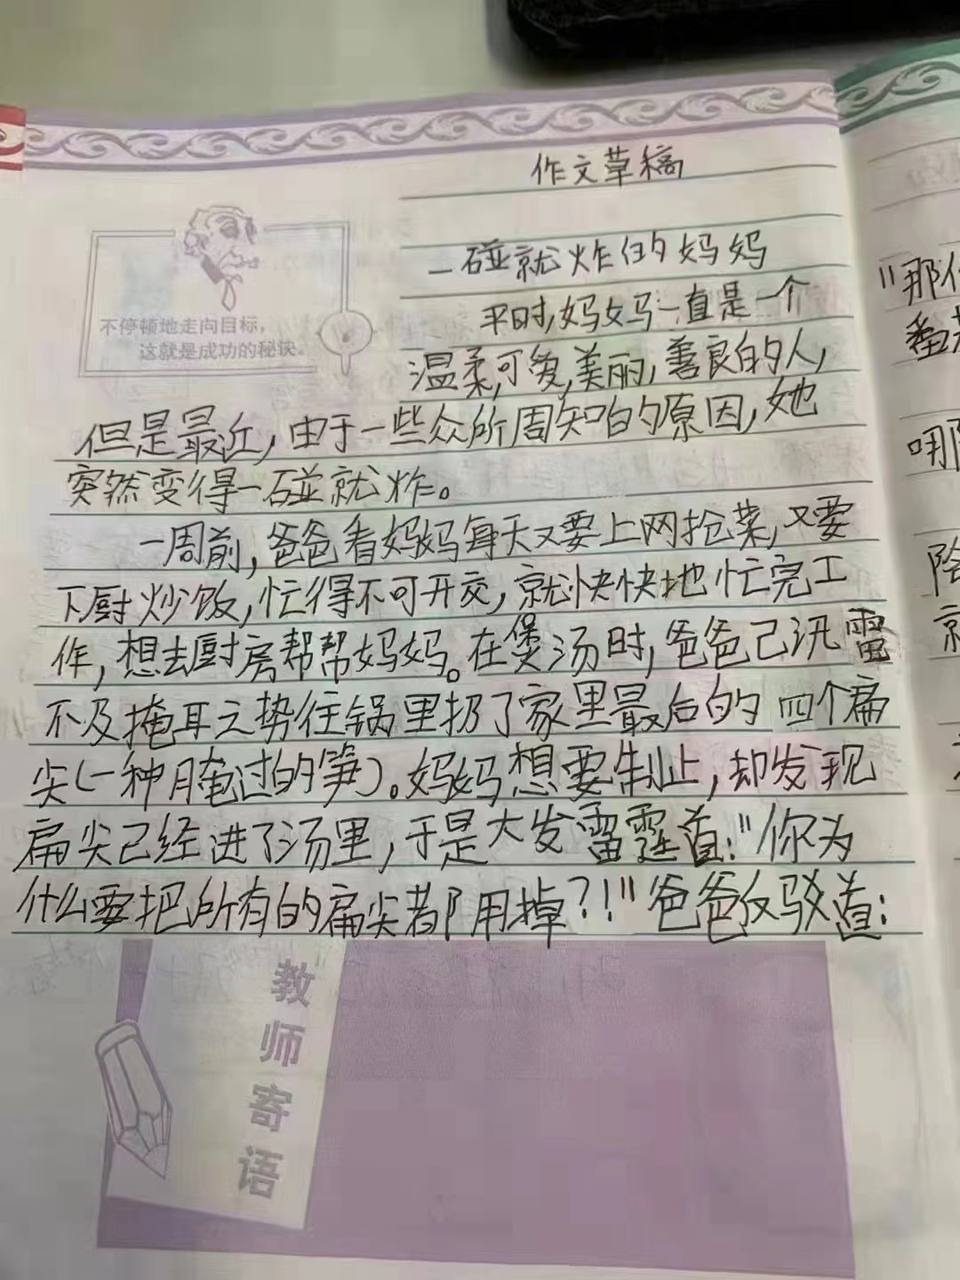 作文草稿
一碰就炸的妈妈
不停顿地走向目标，
这就是成功的秘诀。
平时，妈妈一直是一个
温柔，可爱，美丽，善良的人，
但是最近，由于一些众所周知的原因，她
突然变得一碰就炸。
一周前，爸爸看妈妈每天又要上网抢菜，又要
下厨炒饭，忙得不可开交，就快快地忙完工
作，想去厨房帮帮妈妈。在煲汤时，爸爸已汛雷
不及掩耳之势往锅里扔了家里最后的四个扁
尖（一种腌过的笋）。妈妈想要制止，却发现
扁尖已经进了汤里，于是大发雷霆道：“你为
什么要把所有的扁尖都用掉？！”爸爸反驳道：
“那
番
哪
教师寄语